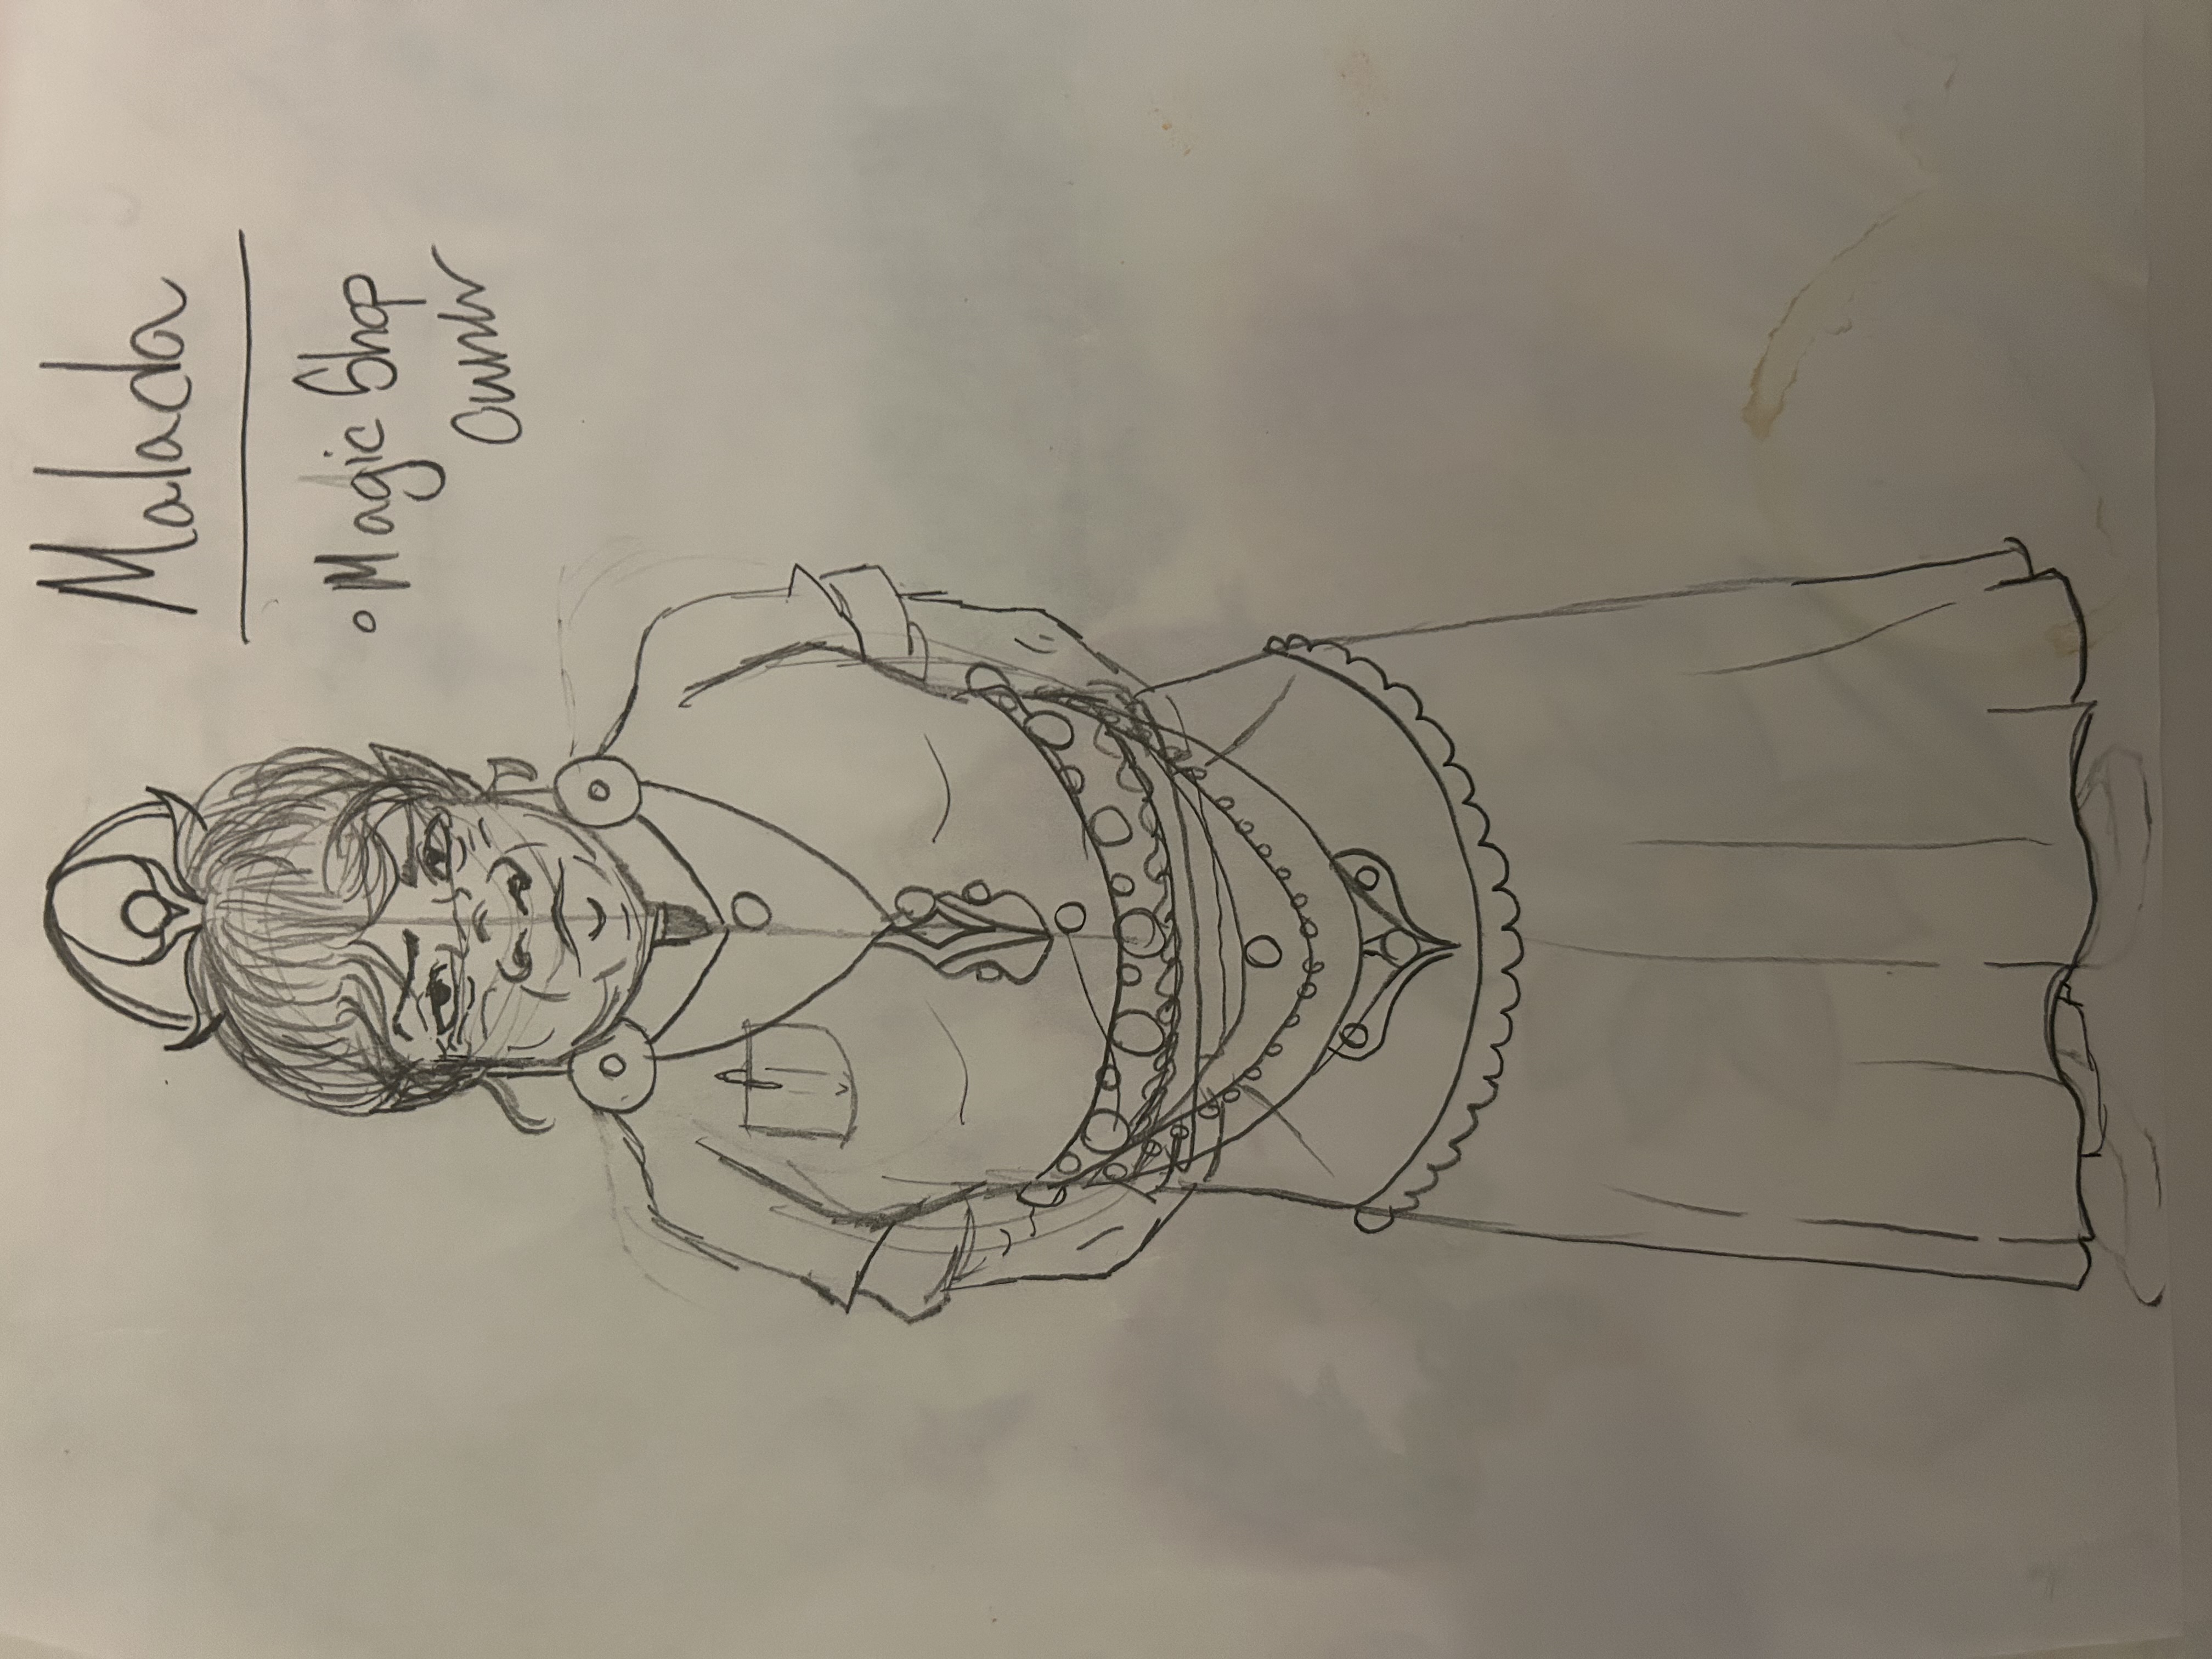 Malada
• Magic Shop
Owner